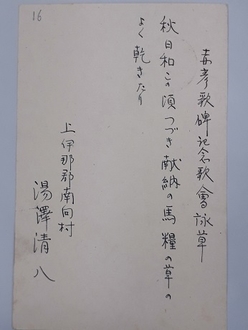 16
喜孝歌碑記念歌會詠草
秋日和この頃つづき献納の馬糧の草の
よく乾きたり
上伊那郡南向村
湯澤清八